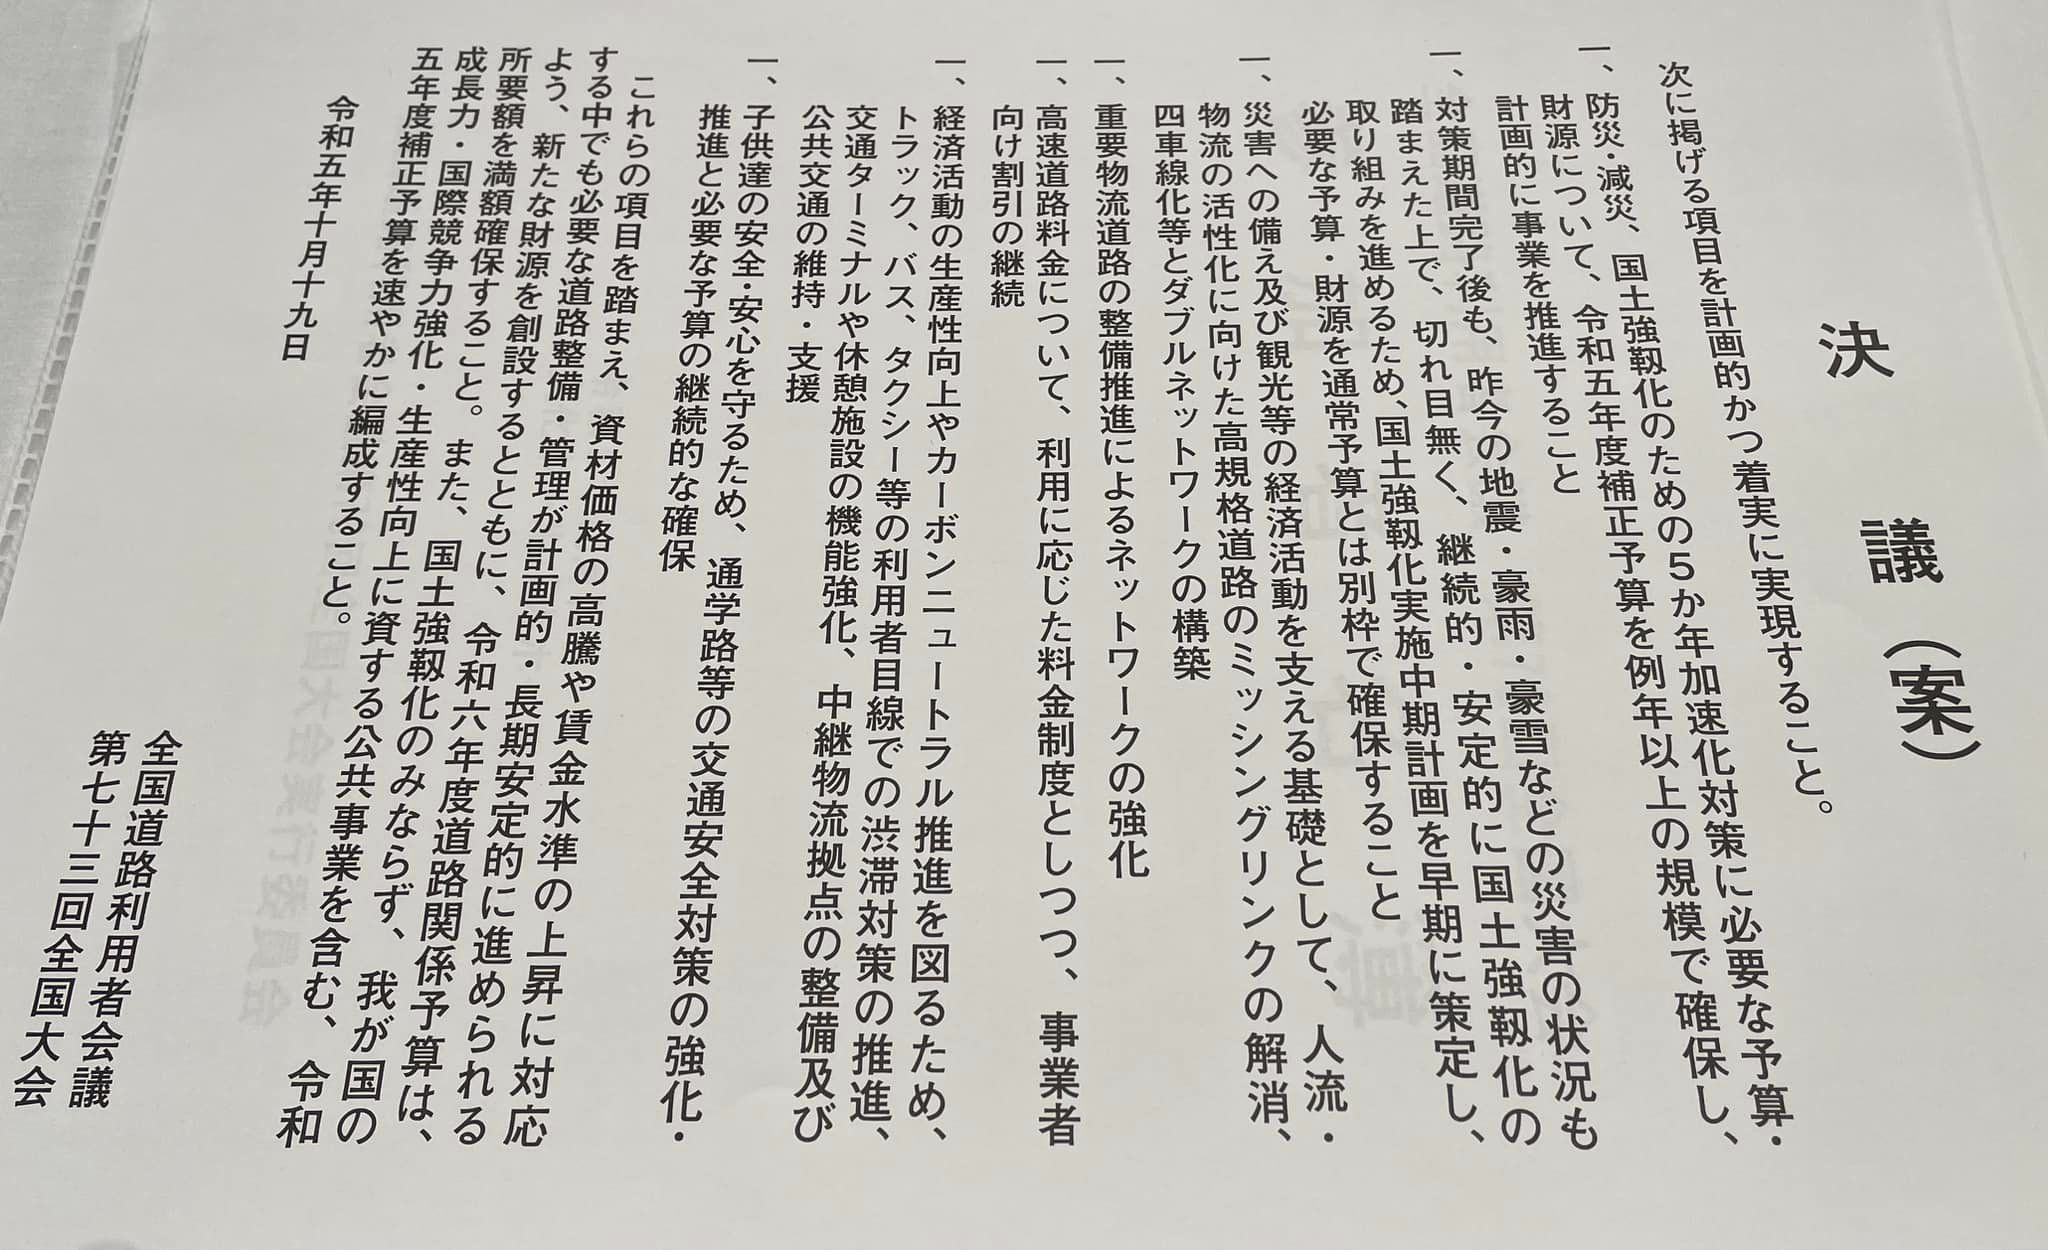 決議（案）
次に掲げる項目を計画的かつ着実に実現すること。
一、防災・減災、国土強靱化のための５か年加速化対策に必要な予算・
財源について、令和五年度補正予算を例年以上の規模で確保し、
計画的に事業を推進すること
一、対策期間完了後も、昨今の地震・豪雨・豪雪などの災害の状況も
踏まえた上で、切れ目無く、継続的・安定的に国土強靱化の
取り組みを進めるため、国土強靱化実施中期計画を早期に策定し、
必要な予算・財源を通常予算とは別枠で確保すること
一、災害への備え及び観光等の経済活動を支える基礎として、人流・
物流の活性化に向けた高規格道路のミッシングリンクの解消、
四車線化等とダブルネットワークの構築
一、重要物流道路の整備推進によるネットワークの強化
一、高速道路料金について、利用に応じた料金制度としつつ、事業者
向け割引の継続
一、経済活動の生産性向上やカーボンニュートラル推進を図るため、
トラック、バス、タクシー等の利用者目線での渋滞対策の推進、
交通ターミナルや休憩施設の機能強化、中継物流拠点の整備及び
公共交通の維持・支援
一、子供達の安全・安心を守るため、通学路等の交通安全対策の強化・
推進と必要な予算の継続的な確保
これらの項目を踏まえ、資材価格の高騰や賃金水準の上昇に対応
する中でも必要な道路整備・管理が計画的・長期安定的に進められる
よう、新たな財源を創設するとともに、令和六年度道路関係予算は、
所要額を満額確保すること。また、国土強靱化のみならず、我が国の
成長力・国際競争力強化・生産性向上に資する公共事業を含む、令和
五年度補正予算を速やかに編成すること。
令和五年十月十九日
全国道路利用者会議
第七十三回全国大会